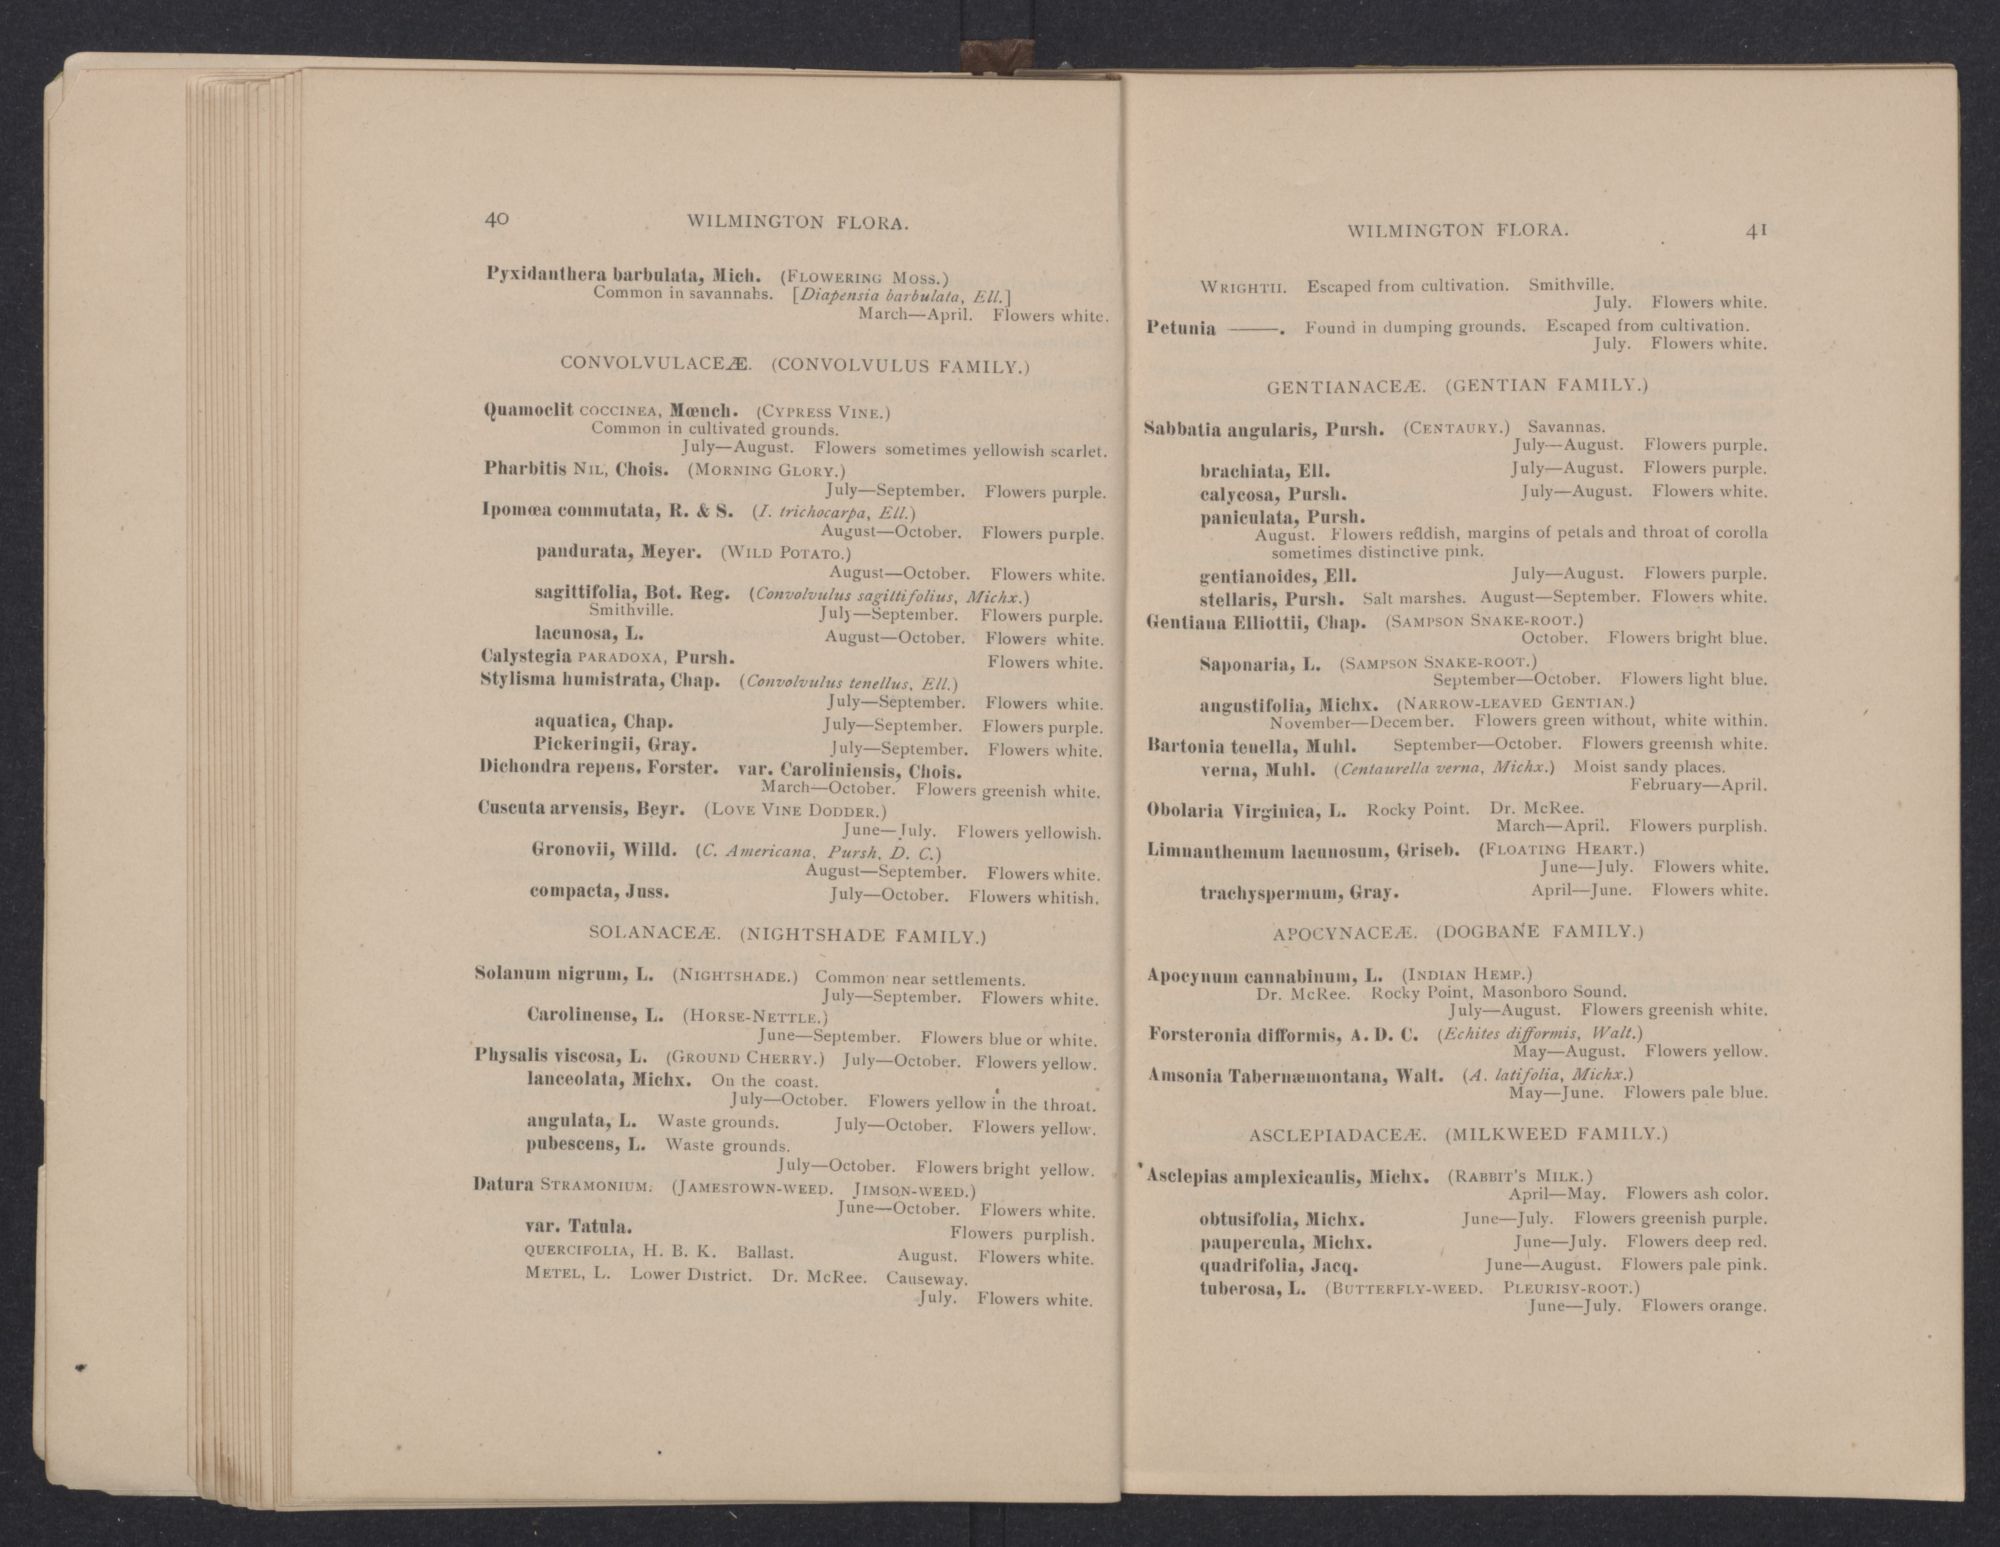 40
WILMINGTON FLORA.
Pyxidanthera barbulata, Mich. (FLOWERING MOSS.)
Common in savannahs. [Diapensia barbulata, Ell.]
March—April. Flowers white.
CONVOLVULACEÆ. (CONVOLVULUS FAMILY.)
Quamoclit COCCINEA, Mœnch. (CYPRESS VINE.)
Common in cultivated grounds.
July—August. Flowers sometimes yellowish scarlet.
Pharbitis NIL, Chois. (MORNING GLORY.)
July—September. Flowers purple.
Ipomœa commutata, R. & S. (I. trichocarpa, Ell.)
August—October. Flowers purple.
pandurata, Meyer. (WILD POTATO.)
August—October. Flowers white.
sagittifolia, Bot. Reg. (Convolvulus sagittifolius, Michx.)
Smithville. July—September. Flowers purple.
lacunosa, L. August—October. Flowers white.
Calystegia PARADOXA, Pursh. Flowers white.
Stylisma humistrata, Chap. (Convolvulus tenellus, Ell.)
July—September. Flowers white.
aquatica, Chap. July—September. Flowers purple.
Pickeringii, Gray. July—September. Flowers white.
Dichondra repens, Forster. var. Caroliniensis, Chois.
March—October. Flowers greenish white.
Cuscuta arvensis, Beyr. (LOVE VINE DODDER.)
June—July. Flowers yellowish.
Gronovii, Willd. (C. Americana, Pursh, D. C.)
August—September. Flowers white.
compacta, Juss. July—October. Flowers whitish.
SOLANACEÆ. (NIGHTSHADE FAMILY.)
Solanum nigrum, L. (NIGHTSHADE.) Common near settlements.
July—September. Flowers white.
Carolinense, L. (HORSE-NETTLE.)
June—September. Flowers blue or white.
Physalis viscosa, L. (GROUND CHERRY.) July—October. Flowers yellow.
lanceolata, Michx. On the coast.
July—October. Flowers yellow in the throat.
angulata, L. Waste grounds. July—October. Flowers yellow.
pubescens, L. Waste grounds.
July—October. Flowers bright yellow.
Datura STRAMONIUM. (JAMESTOWN-WEED. JIMSON-WEED.)
June—October. Flowers white.
var. Tatula. Flowers purplish.
QUERCIFOLIA, H. B. K. Ballast. August. Flowers white.
METEL, L. Lower District. Dr. McRee. Causeway.
July. Flowers white.
WILMINGTON FLORA.
41
WRIGHTII. Escaped from cultivation. Smithville.
July. Flowers white.
Petunia ———. Found in dumping grounds. Escaped from cultivation.
July. Flowers white.
GENTIANACEÆ. (GENTIAN FAMILY.)
Sabbatia angularis, Pursh. (CENTAURY.) Savannas.
July—August. Flowers purple.
brachiata, Ell. July—August. Flowers purple.
calycosa, Pursh. July—August. Flowers white.
paniculata, Pursh.
August. Flowers reddish, margins of petals and throat of corolla
sometimes distinctive pink.
gentianoides, Ell. July—August. Flowers purple.
stellaris, Pursh. Salt marshes. August—September. Flowers white.
Gentiana Elliottii, Chap. (SAMPSON SNAKE-ROOT.)
October. Flowers bright blue.
Saponaria, L. (SAMPSON SNAKE-ROOT.)
September—October. Flowers light blue.
angustifolia, Michx. (NARROW-LEAVED GENTIAN.)
November—December. Flowers green without, white within.
Bartonia tenella, Muhl. September—October. Flowers greenish white.
verna, Muhl. (Centaurella verna, Michx.) Moist sandy places.
February—April.
Obolaria Virginica, L. Rocky Point. Dr. McRee.
March—April. Flowers purplish.
Limnanthemum lacunosum, Griseb. (FLOATING HEART.)
June—July. Flowers white.
trachyspermum, Gray. April—June. Flowers white.
APOCYNACEÆ. (DOGBANE FAMILY.)
Apocynum cannabinum, L. (INDIAN HEMP.)
Dr. McRee. Rocky Point, Masonboro Sound.
July—August. Flowers greenish white.
Forsteronia difformis, A. D. C. (Echites difformis, Walt.)
May—August. Flowers yellow.
Amsonia Tabernæmontana, Walt. (A. latifolia, Michx.)
May—June. Flowers pale blue.
ASCLEPIADACEÆ. (MILKWEED FAMILY.)
Asclepias amplexicaulis, Michx. (RABBIT'S MILK.)
April—May. Flowers ash color.
obtusifolia, Michx. June—July. Flowers greenish purple.
paupercula, Michx. June—July. Flowers deep red.
quadrifolia, Jacq. June—August. Flowers pale pink.
tuberosa, L. (BUTTERFLY-WEED. PLEURISY-ROOT.)
June—July. Flowers orange.